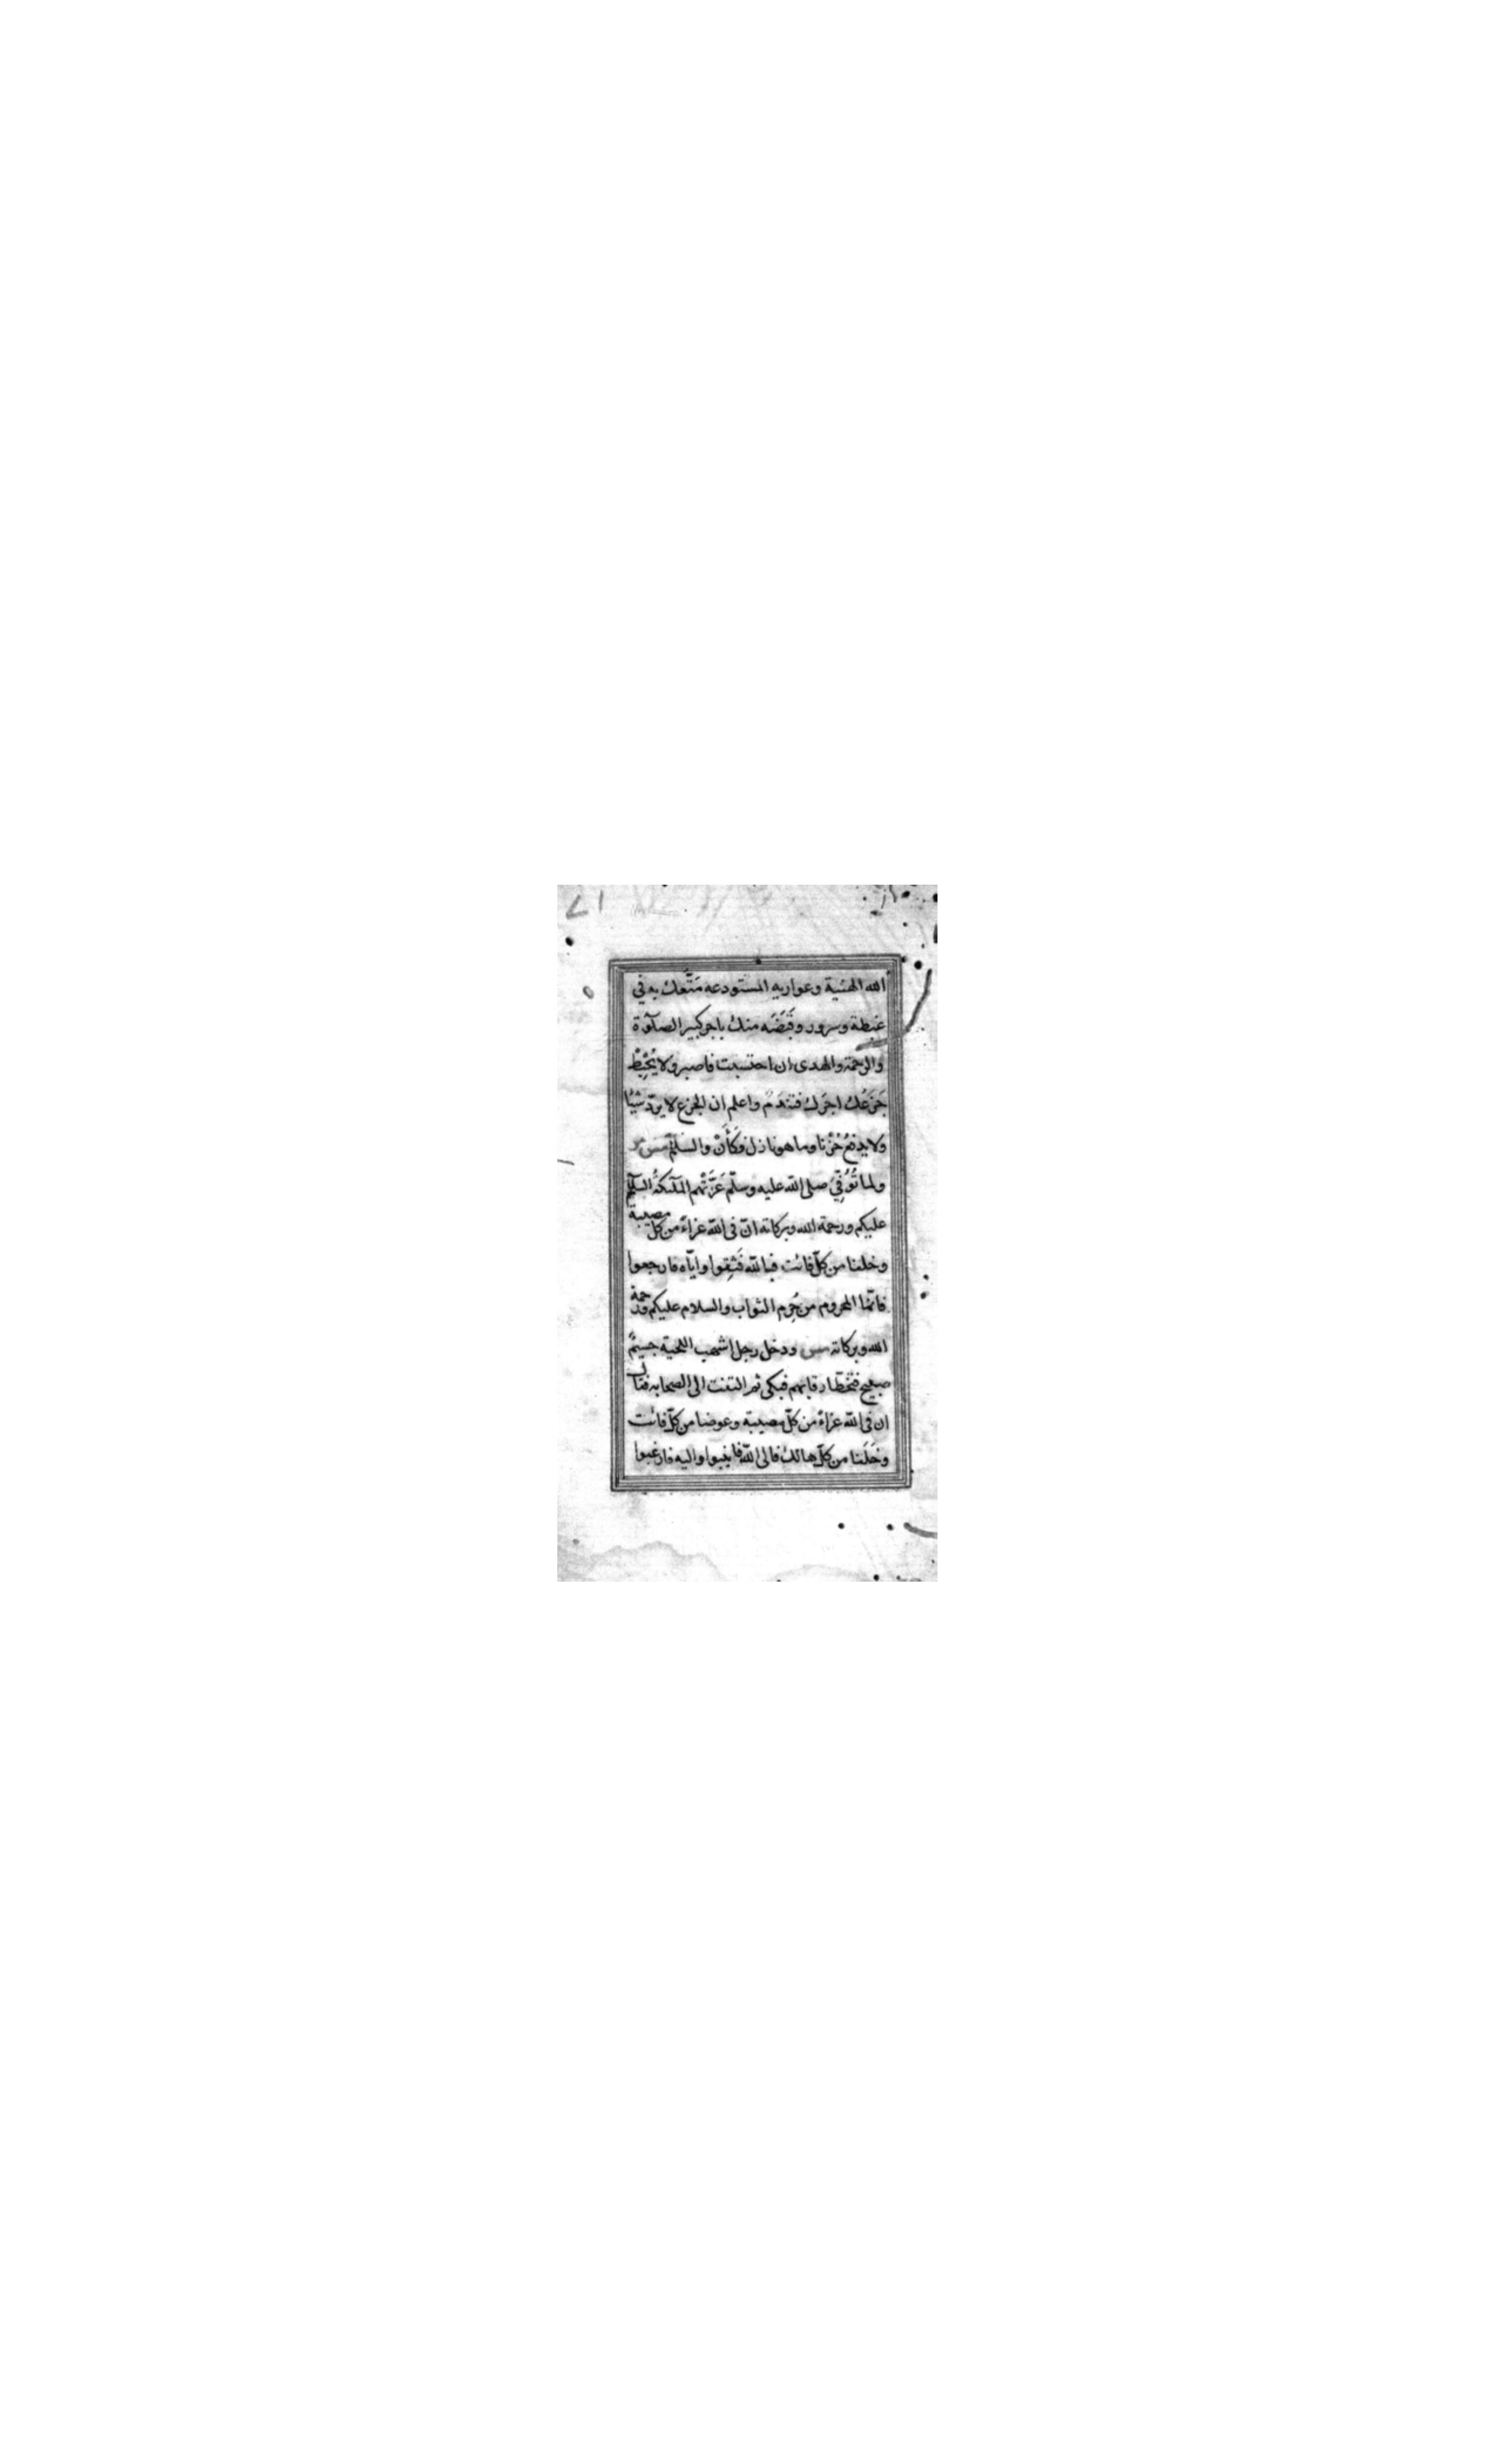 الله الهنية وعواريه المستودعه مَتَّعك به في
غبطة وسرور وقَبَضَه منك باجر كبير الصلوة
والرحمة والهدى ان احتسبت فاصبر ولا يُحْبِطْ
جَزَعُك اجرَك فتندَمُ واعلم ان الجزع لا يردّ شيًا
ولا يدفعُ حُزْنا وما هو نازل فكَأَنْ والسلٰم مس مر
ولما تُوُفِّيَ صلى الله عليه وسلّم عَزَّتْهم الملٰئكةُ السلٰم
عليكم ورحمة الله وبركاته انّ فى الله عزاءً من كلّ مصيبة
وخلفا من كلّ فائت فبالله فَثِقوا وايّاه فارجعوا
فانّما المحروم من حُرِم الثواب والسلام عليكم ورحمة
الله وبركاته مس ودخل رجل اشهب اللحية جسيمٌ
صبيح فتخطّا رقابهم فبكى ثم التفت الى الصحابه فقال
ان فى الله عزاءً من كلّ مصيبة وعوضا من كلّ فائت
وخَلَفا من كلّ هالك فالى الله فانيبوا واليه فارغبوا